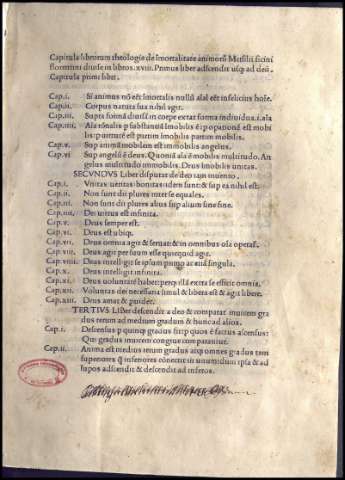 Capitula librorum theologie de imortalitate animorũ Marsilii ficini
florentini diuise in libros .xviii. Primus liber adscendit usq; ad deũ.
Capitula primi libri.
Cap.i. Si animus nõ eẽt imortalis nullũ aïal eẽt infelicius hoïe.
Cap.ii. Corpus natura sua nihil agit.
Cap.iii. Supra formã diuisã in corpe extat forma indiuidua .i. aïa
Cap.iiii. Aïa rõnalis p substantiã imobilis ẽ: p opationẽ est mobi
lis: p uirtutẽ est partim imobilis partim mobilis.
Cap.v. Sup animã mobilem est imobilis angelus.
Cap.vi Sup angelũ ẽ deus. Qm̃ aïa ẽ mobilis multitudo. An
gelus multitudo immobilis. Deus imobilis unitas.
SECVNDVS Liber disputat de deo iam inuento
Cap.i. Vnitas ueritas bonitas idem sunt: & sup ea nihil est.
Cap.ii. Non sunt dii plures inter se equales.
Cap.iii. Non sunt dii plures alius sup alium sine fine.
Cap.iiii. Dei uirtus est infinita.
Cap.v. Deus semper est.
Cap.vi. Deus est ubiq;.
Cap.vii. Deus omnia agit & seruat: & in omnibus oïa operat.
Cap.viii. Deus agit per suum esse quicquid agit.
Cap.viiii. Deus intelligit se ipsum primo ac etiã singula.
Cap.x. Deus intelligit infinita.
Cap.xi. Deus uoluntatẽ habet: perq; illã extra se efficit omnia.
Cap.xii. Voluntas dei necessaria simul & libera est: & agit libere.
Cap.xiii. Deus amat & puidet.
TERTIVS Liber descendit a deo & comparat inuicem gra
dus rerum ad medium gradum & hunc ad alios.
Cap.i. Descensus p quinq; gradus fit: p quos ẽ factus ascensus:
Qui gradus inuicem congrue comparantur.
Cap.ii. Anima est medius rerum gradus atq; omnes gradus tam
superiores q̃ inferiores connectit in unum: dum ipsa & ad
supos adscendit & descendit ad inferos.